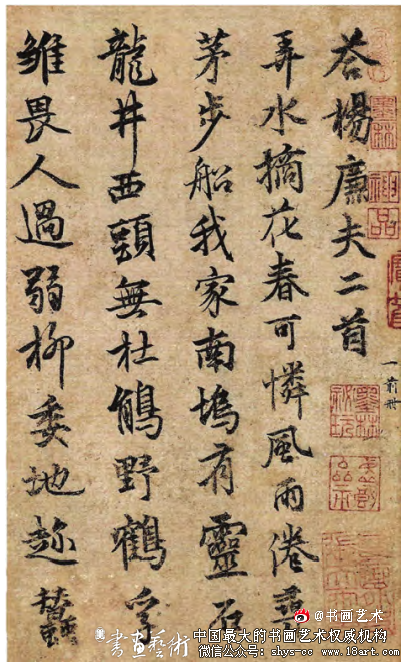 荅楊廉夫二首
弄水摘花春可憐風雨倦尋
茅步船我家南塢有靈石
龍井西頭無杜鵑野鶴孚
雏畏人過弱柳委地趂蠶
墨林
神品
墨林
祕玩
@书画艺术
書画藝術
中国最大的书画艺术权威机构
微信公众号: shys-cc www.18art.com